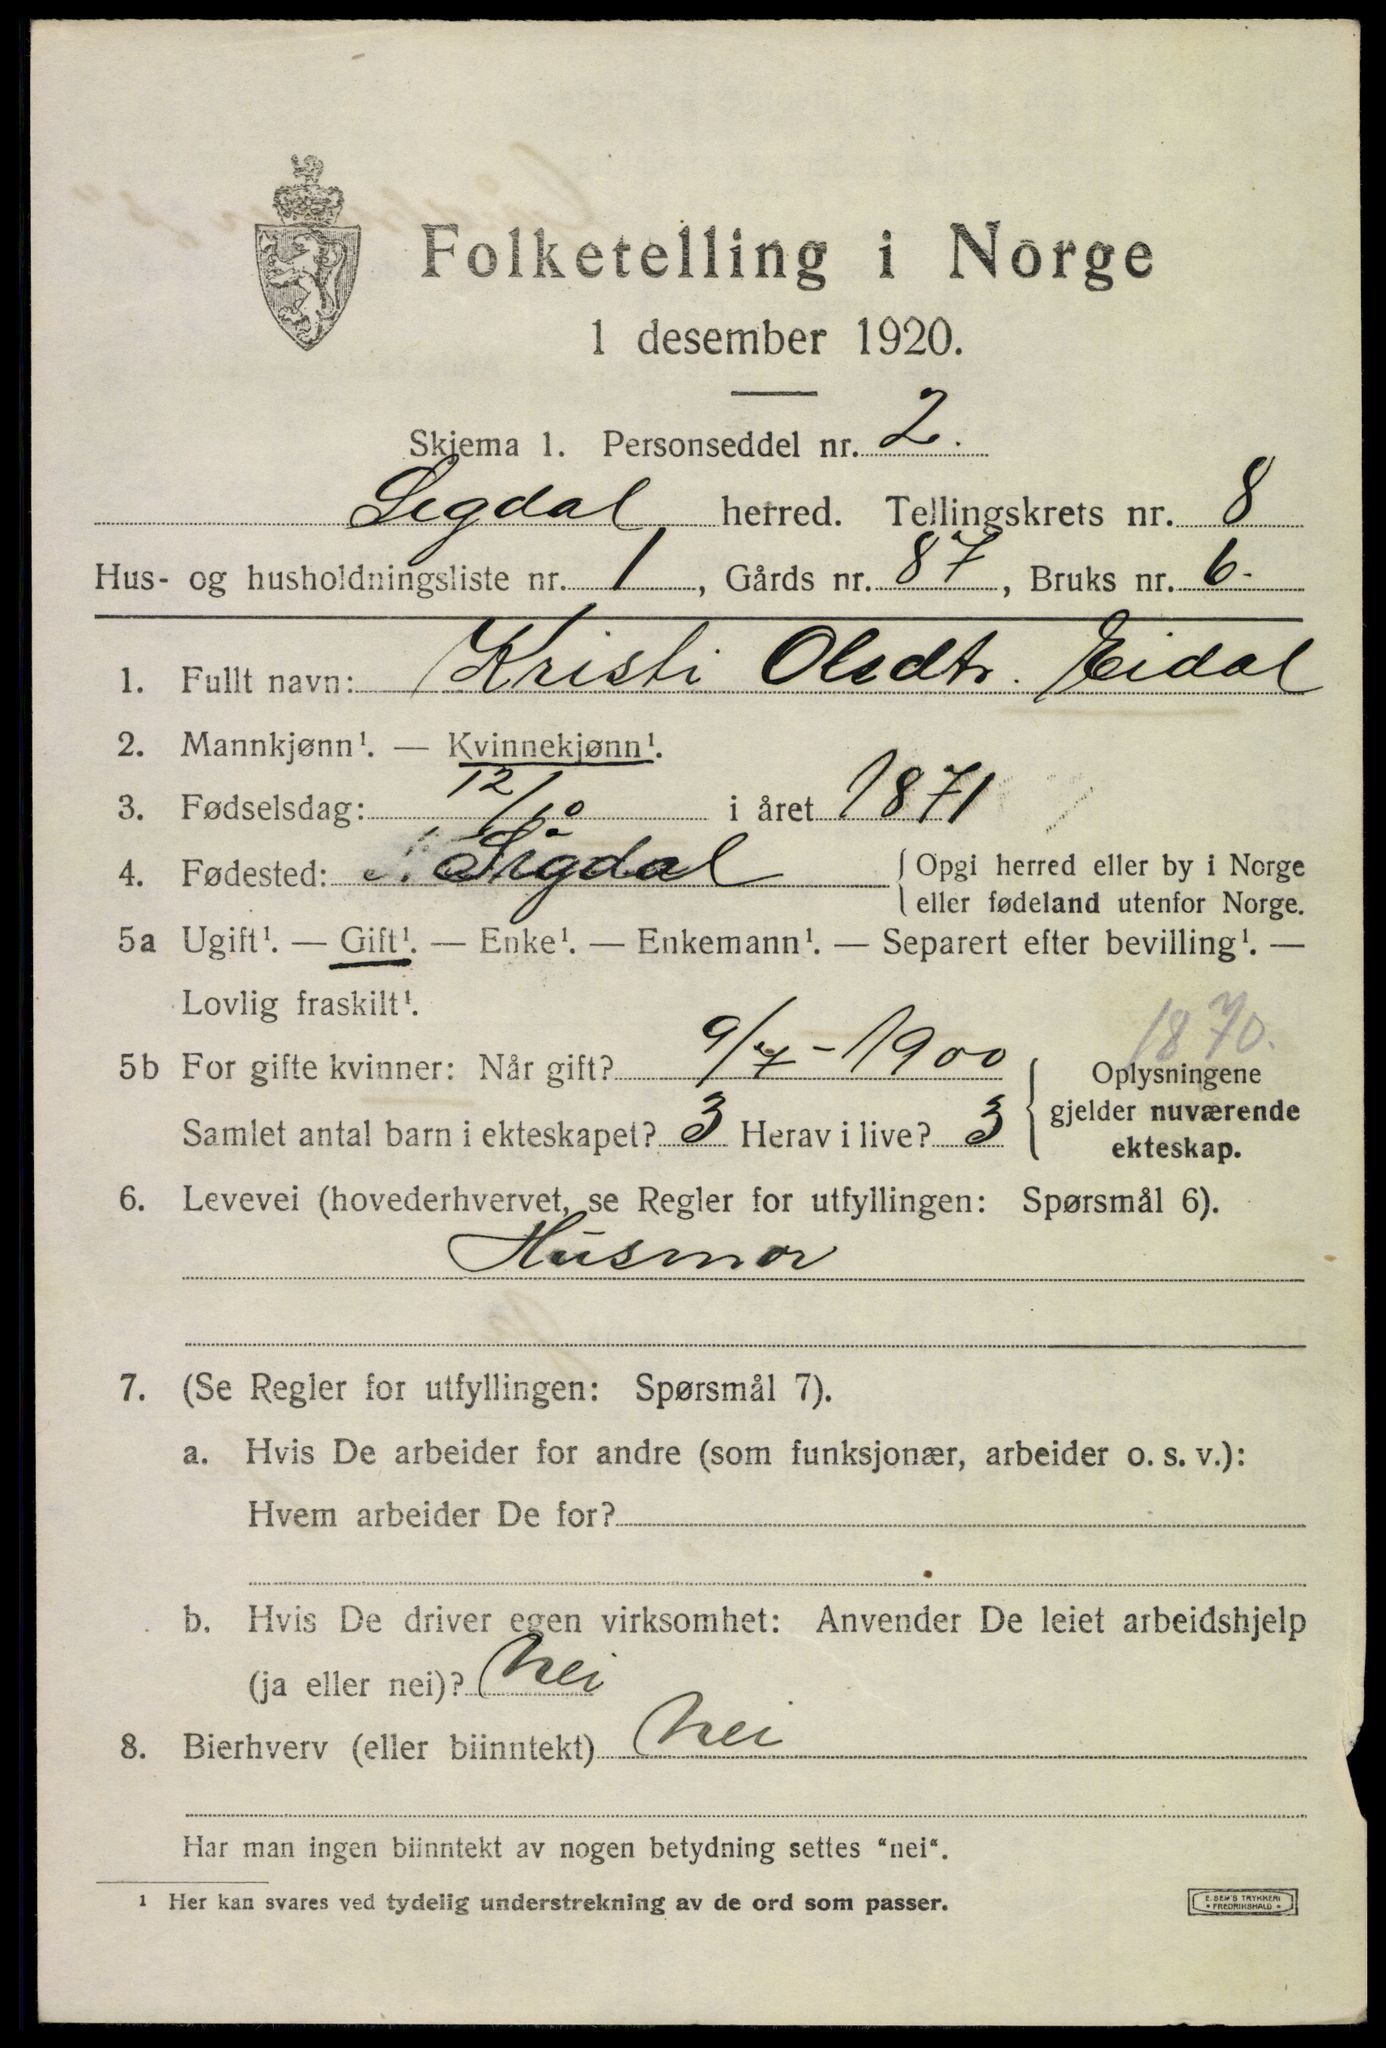 Folketelling i Norge
1 desember 1920.
Skjema 1. Personseddel nr. 2.
Sigdal herred. Tellingskrets nr. 8
Hus- og husholdningsliste nr. 1, Gårds nr. 87, Bruks nr. 6.
1. Fullt navn: Kristi Olsdtr. Eidal
2. Mannkjønn¹. — Kvinnekjønn¹.
3. Fødselsdag: 12/10 i året 1871
4. Fødested: Sigdal {Opgi herred eller by i Norge
eller fødeland utenfor Norge.
5a Ugift¹. — Gift¹. — Enke¹. — Enkemann¹. — Separert efter bevilling¹. —
Lovlig fraskilt¹.
1870.
5b For gifte kvinner: Når gift? 9/7 - 1900
Samlet antal barn i ekteskapet? 3 Herav i live? 3
Oplysningene
gjelder nuværende
ekteskap.
6. Levevei (hovederhvervet, se Regler for utfyllingen: Spørsmål 6).
Husmor
7. (Se Regler for utfyllingen: Spørsmål 7).
a. Hvis De arbeider for andre (som funksjonær, arbeider o. s. v.):
Hvem arbeider De for?
b. Hvis De driver egen virksomhet: Anvender De leiet arbeidshjelp
(ja eller nei)? Nei
8. Bierhverv (eller biinntekt) Nei
Har man ingen biinntekt av nogen betydning settes "nei".
¹ Her kan svares ved tydelig understrekning av de ord som passer.
E. SEM'S TRYKKERI
• FREDRIKSHALD •